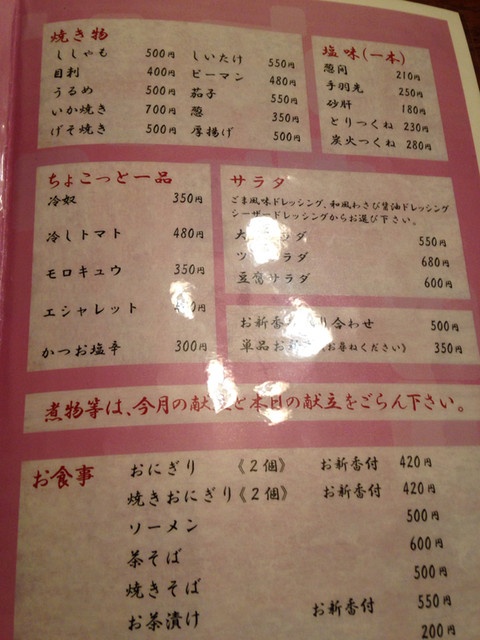 焼き物
ししゃも 500円
目刺 400円
うるめ 500円
いか焼き 700円
げそ焼き 500円
しいたけ 550円
ピーマン 480円
茄子 550円
葱 350円
厚揚げ 500円
塩味(一本)
葱間 210円
手羽先 250円
砂肝 180円
とりつくね 230円
炭火つくね 280円
ちょこっと一品
冷奴 350円
冷しトマト 480円
モロキュウ 350円
エシャレット 円
かつお塩辛 300円
サラダ
ごま風味ドレッシング、和風わさび醤油ドレッシング
シーザードレッシングからお選び下さい。
大 サラダ 550円
ツ ラダ 680円
豆腐サラダ 600円
お新香 り合わせ 500円
単品お (お尋ねください) 350円
煮物等は、今月の献立と本日の献立をごらん下さい。
お食事
おにぎり 《2個》 お新香付 420円
焼きおにぎり《2個》 お新香付 420円
ソーメン 500円
茶そば 600円
焼きそば 500円
お茶漬け お新香付 550円
200円